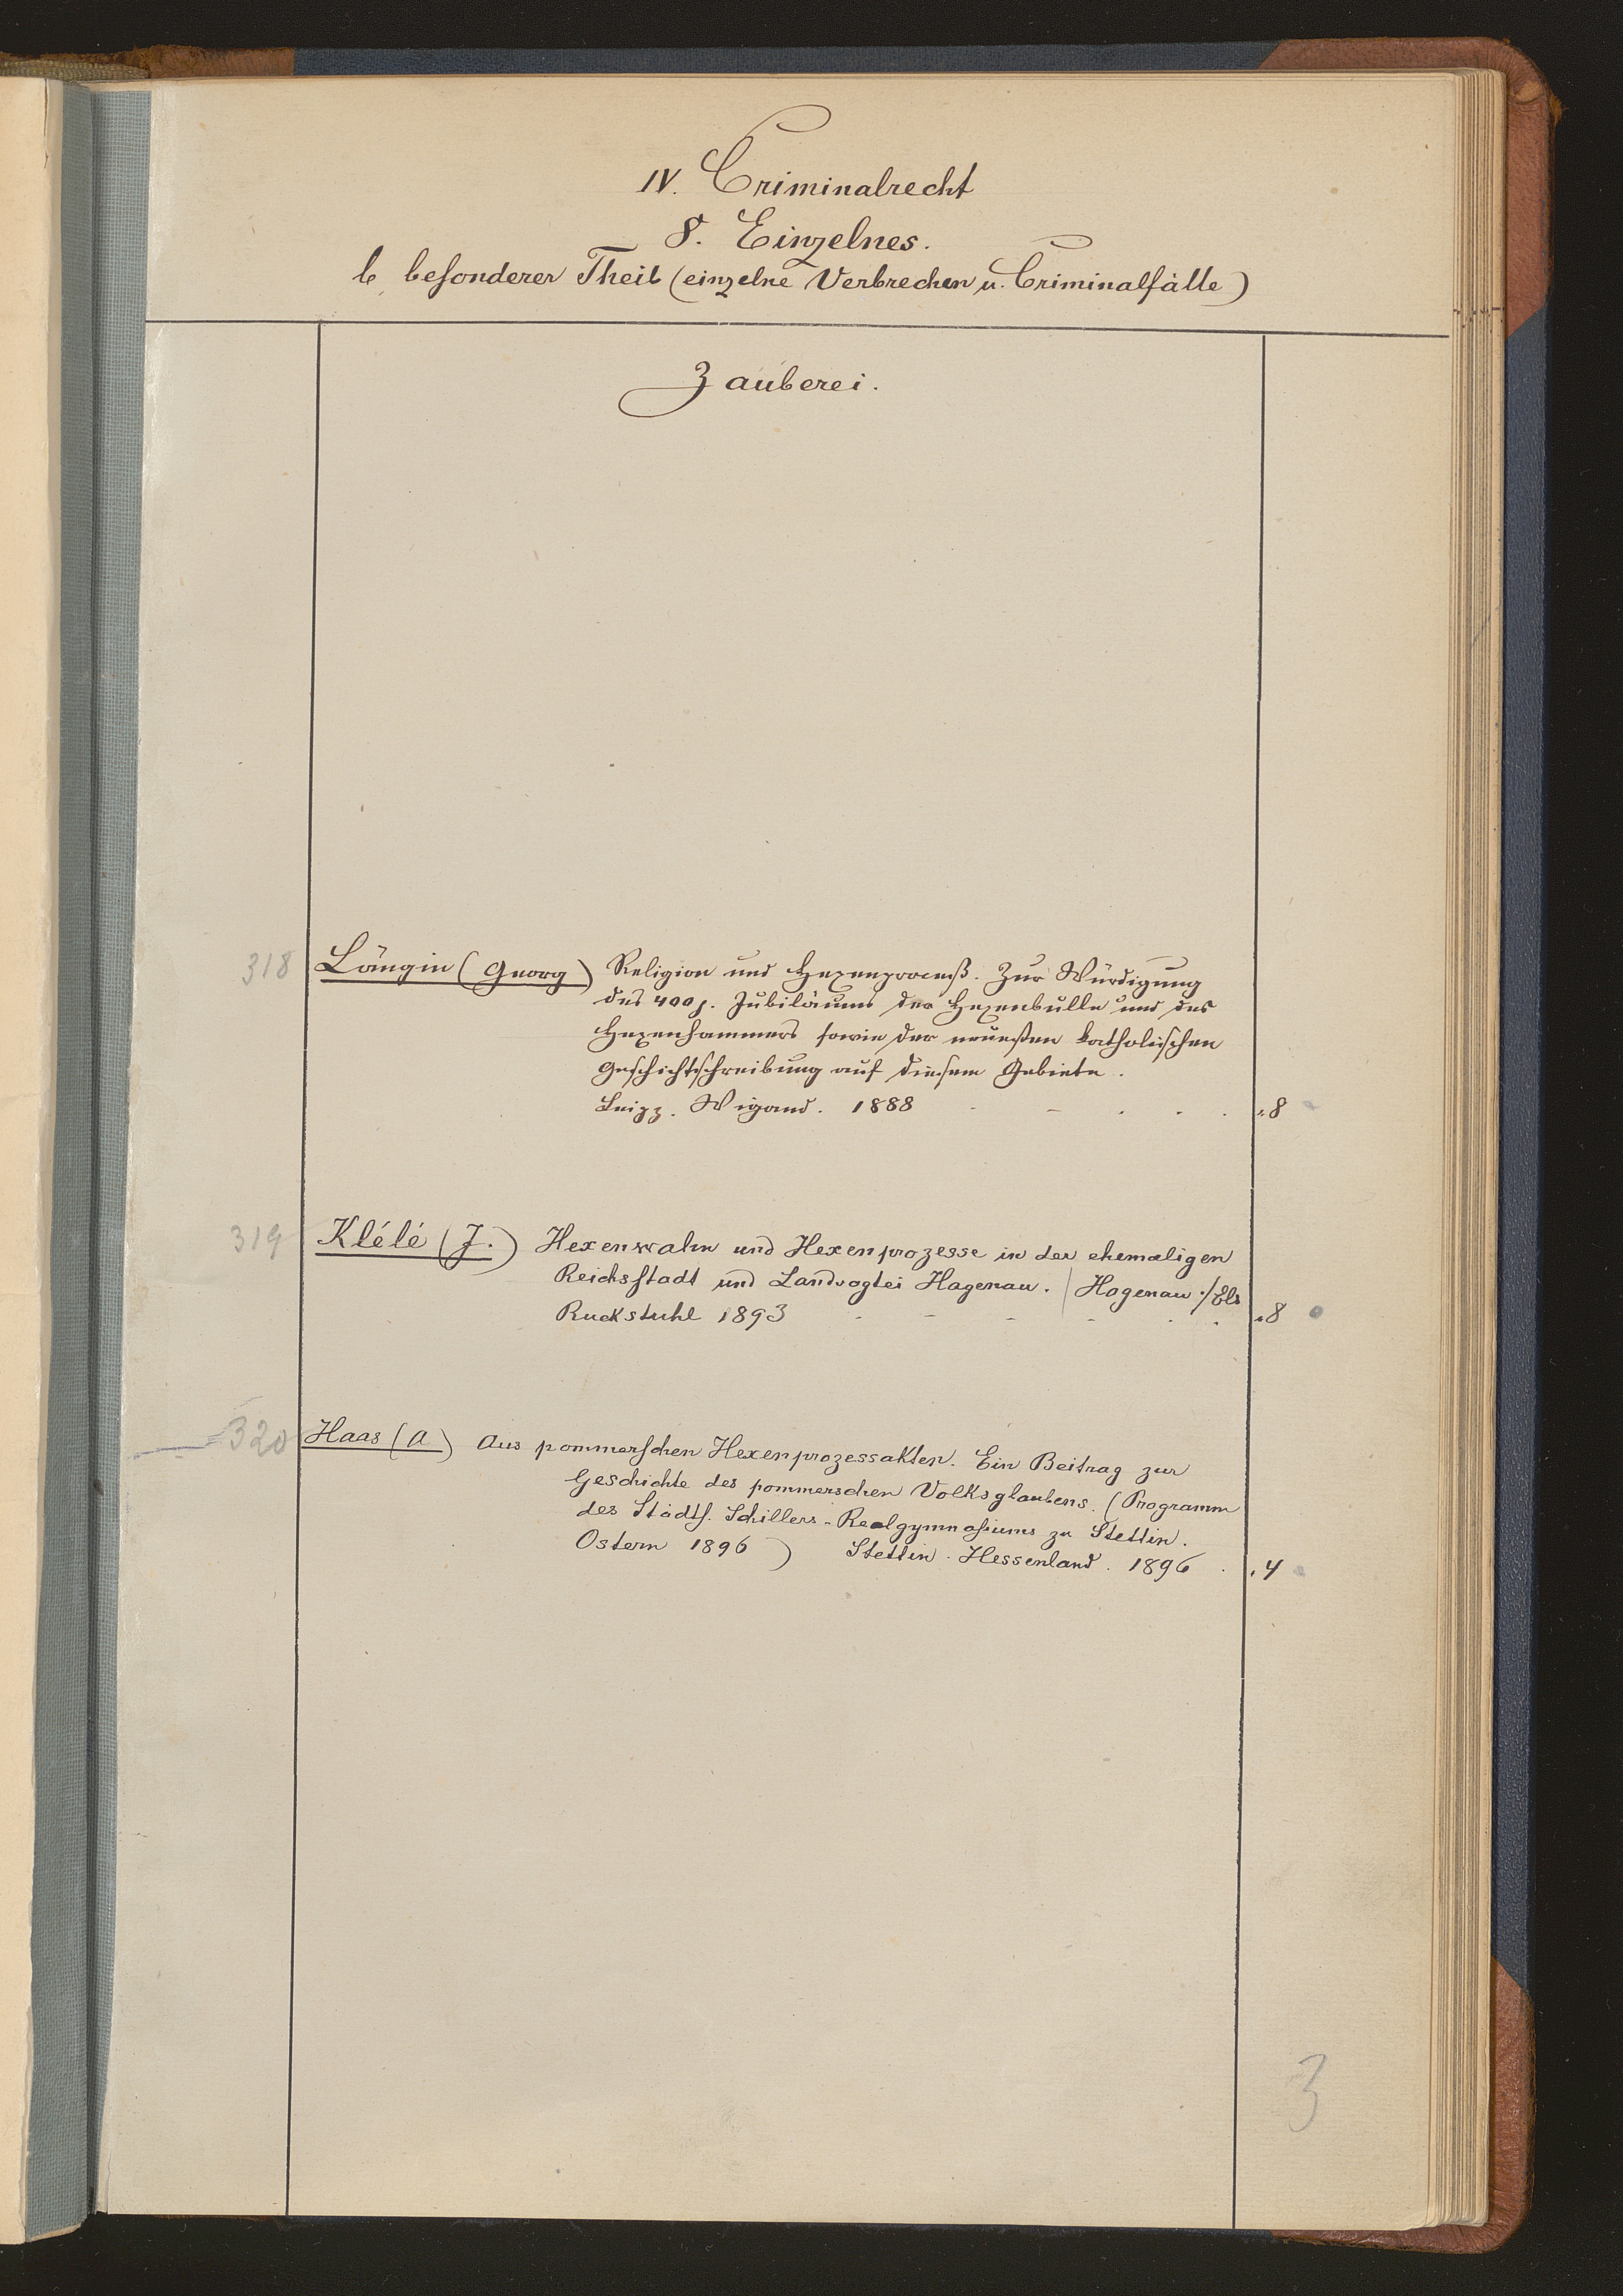 IV. Criminalrecht
8. Einzelnes.
b, besonderer Theil (einzelne Verbrechen u. Criminalfälle)
Zauberei.
318 Längin (Georg) Religion und Hexenproceß. Zur Würdigung
des 400j. Jubiläums der Hexenbulle und des
Hexenhammers sowie der neuesten katholischen
Geschichtschreibung auf diesem Gebiete.
Leipz. Wigand. 1888 . - . . . „8
319 Klélé (J.) Hexenwahn und Hexenprozesse in der ehemaligen
Reichsstadt und Landvogtei Hagenau. / Hagenau i/Els
Ruckstuhl 1893 - - - - . . „8
320 Haas (A) Aus pommerschen Hexenprozessakten. Ein Beitrag zur
Geschichte des pommerschen Volksglaubens. (Programm
des Städts. Schillers-Realgymnasiums zu Stettin.
Ostern 1896) Stettin. Hessenland. 1896 . „4
3